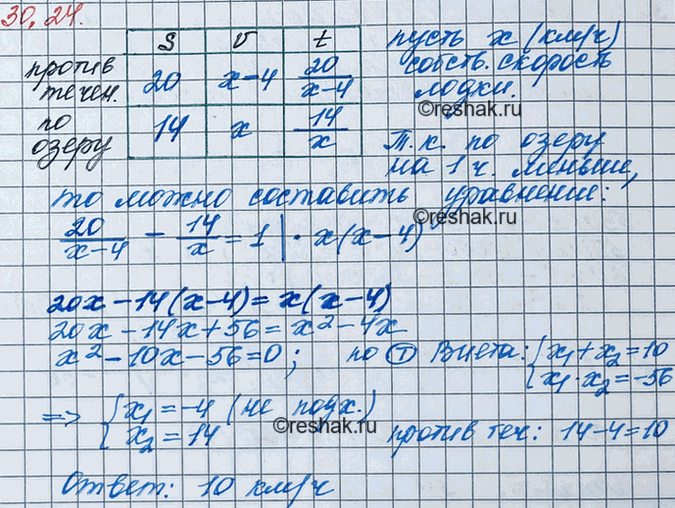 30,24.
S v t
против течен. 20 x-4 20/(x-4)
по озеру 14 x 14/x
пусть x (км/ч)
собств. скорость
лодки.
©reshak.ru
Т.к. по озеру
на 1 ч. меньше,
то можно составить уравнение:
20/(x-4) - 14/x = 1 | · x(x-4)
©reshak.ru
20x-14(x-4)=x(x-4)
20x-14x+56=x²-4x
x²-10x-56=0; по Т Виета: { x₁+x₂=10
x₁·x₂=-56
=> { x₁=-4 (не подх.)
x₂=14
©reshak.ru
против теч: 14-4=10
Ответ: 10 км/ч